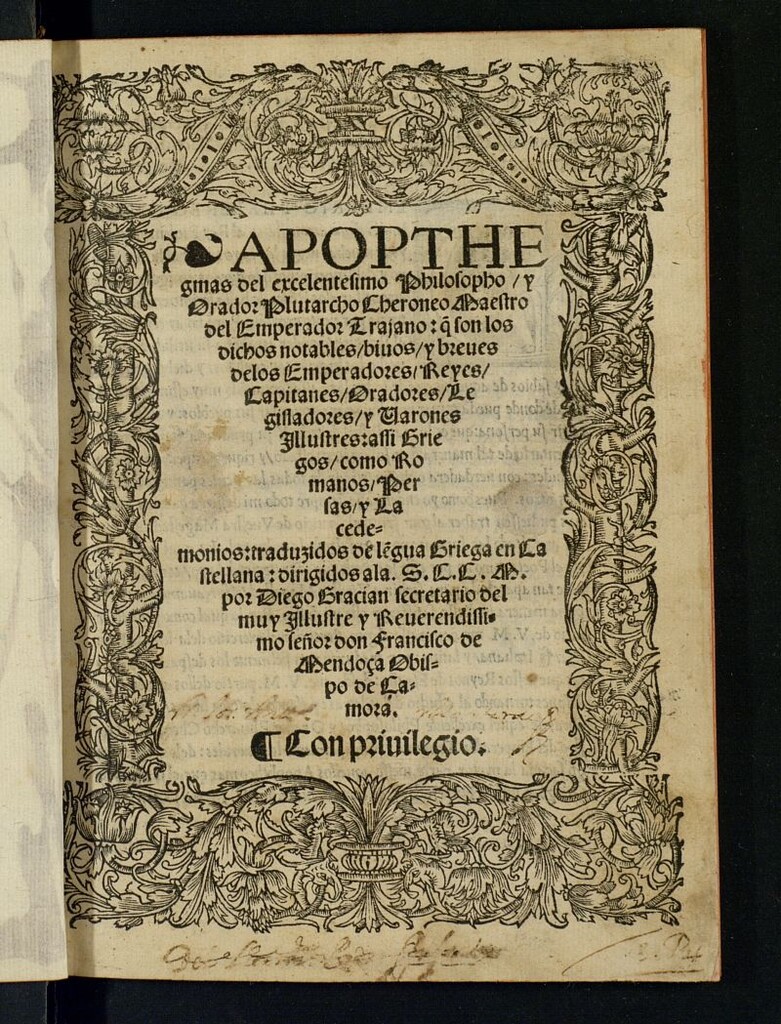 APOPTHE
gmas del excelentesimo Philosopho / y
Orador Plutarcho Cheroneo Maestro
del Emperador Trajano: q̃ son los
dichos notables/biuos/y breues
delos Emperadores/Reyes/
Capitanes/Oradores/Le
gisladores/y Uarones
Illustres:assi Grie
gos/como Ro
manos/Per
sas/y La
cede=
monios:traduzidos de lẽgua Griega en Ca
stellana: dirigidos ala. S. C. C. M.
por Diego Gracian secretario del
muy Illustre y Reuerendissi=
mo señor don Francisco de
Mendoça Obis=
po de Ca=
mora.
¶ Con priuilegio.